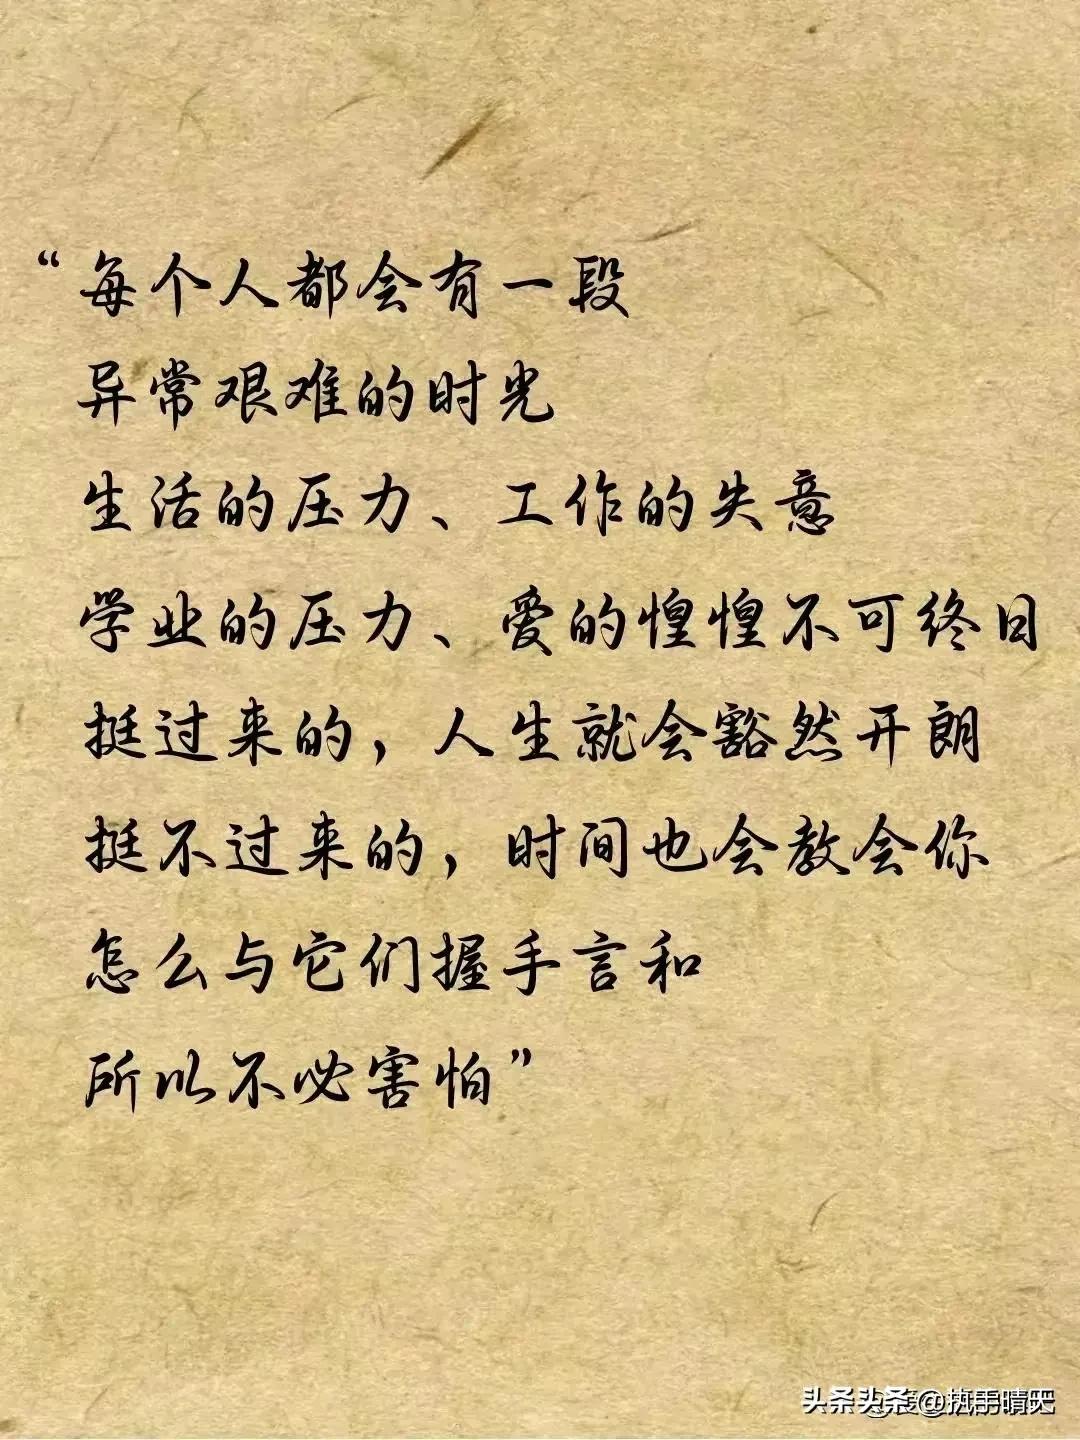 “每个人都会有一段
异常艰难的时光
生活的压力、工作的失意
学业的压力、爱的惶惶不可终日
挺过来的，人生就会豁然开朗
挺不过来的，时间也会教会你
怎么与它们握手言和
所以不必害怕”
头条